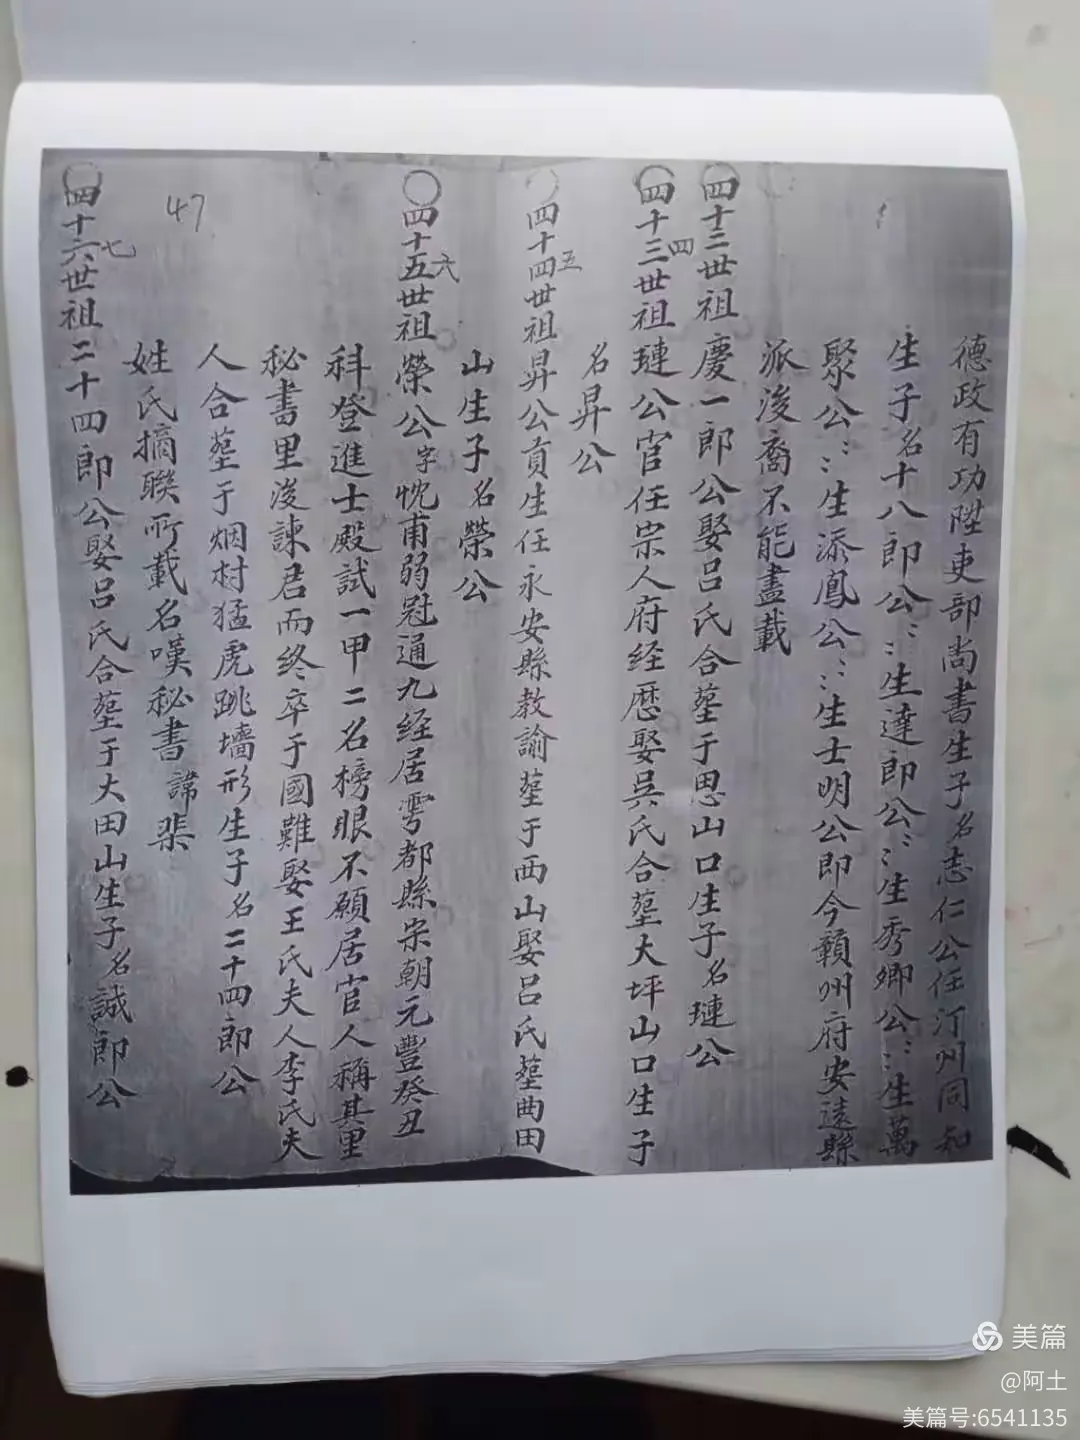 德政有功陞吏部尚書生子名志仁公任汀州同知
生子名十八郎公〻生達郎公〻生秀卿公〻生萬
聚公〻生添鳳公〻生士明公即今贛州府安遠縣
派浚裔不能盡載
〇四十三世祖慶一郎公娶呂氏合塟于思山口生子名璉公
〇四十三世祖璉公官任宗人府经歷娶吳氏合塟大坪山口生子
四
名昇公
〇四十四世祖昇公貢生任永安縣教諭塟于西山娶呂氏塟曲田
五
山生子名榮公
〇四十五世祖榮公字忱甫弱冠通九经居雩都縣宋朝元豐癸丑
六
科登進士殿試一甲二名榜眼不願居官人稱其里
秘書里浚諫君而终卒于國難娶王氏夫人李氏夫
人合塟于烟村猛虎跳墻形生子名二十四郎公
47
姓氏摘聯所載名嘆秘書諱
〇四十六世祖二十四郎公娶呂氏合塟于大田山生子名誠郎公
七
美篇
@阿土
美篇号:6541135